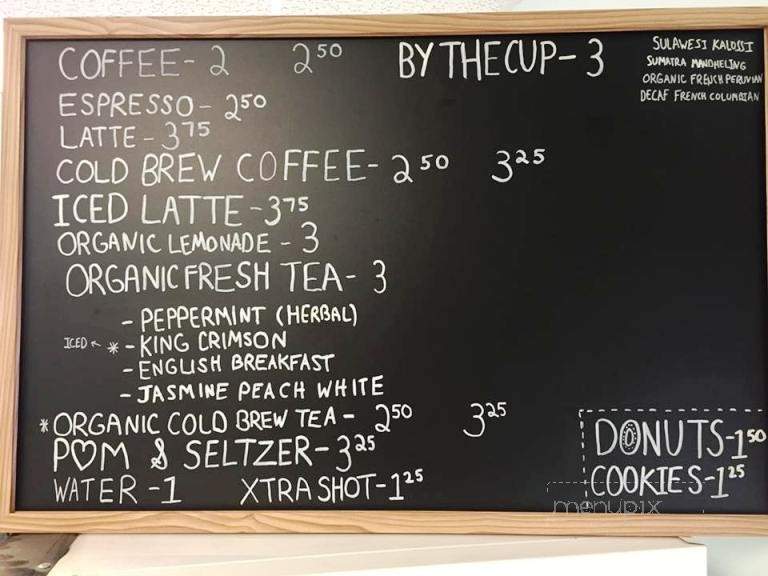 COFFEE - 2 2 50 BY THE CUP - 3
SULAWESI KALOSSI
SUMATRA MANDHELING
ORGANIC FRENCH PERUVIAN
DECAF FRENCH COLUMBIAN
ESPRESSO - 2 50
LATTE - 3 75
COLD BREW COFFEE - 2 50 3 25
ICED LATTE - 3 75
ORGANIC LEMONADE - 3
ORGANIC FRESH TEA - 3
- PEPPERMINT (HERBAL)
ICED ← * - KING CRIMSON
- ENGLISH BREAKFAST
- JASMINE PEACH WHITE
* ORGANIC COLD BREW TEA - 2 50 3 25
P♡M & SELTZER - 3 25
WATER - 1 XTRA SHOT - 1 25
DONUTS - 1 50
COOKIES - 1 25
menupix